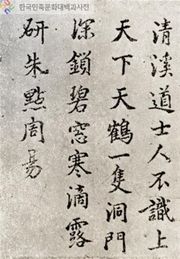 한국민족문화대백과사전
清溪道士人不識上
天下天鶴一隻洞門
深鎖碧窓寒滴露
硏朱點周易